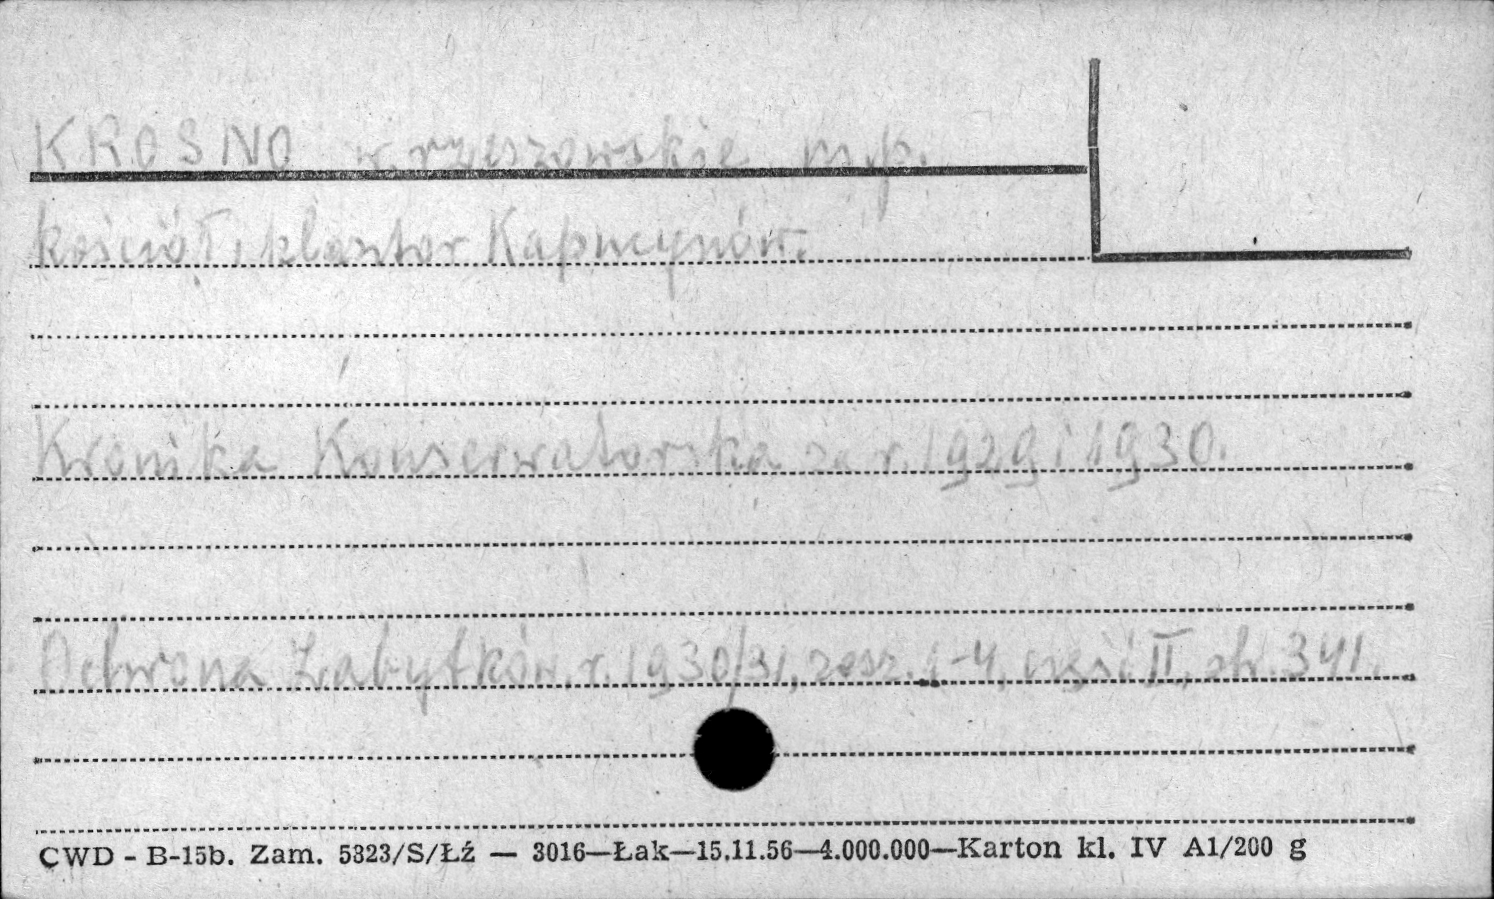 KROSNO w. rzeszowskie m.p.
kościół, klasztor Kapucynów.
Kronika Konserwatorska za r. 1929 i 1930.
Ochrona Zabytków. r. 1930/31, zesz. 1-4, część II, str. 341.
CWD - B-15b. Zam. 5323/S/Łź — 3016—Łak—15.11.56—4.000.000—Karton kl. IV A1/200 g